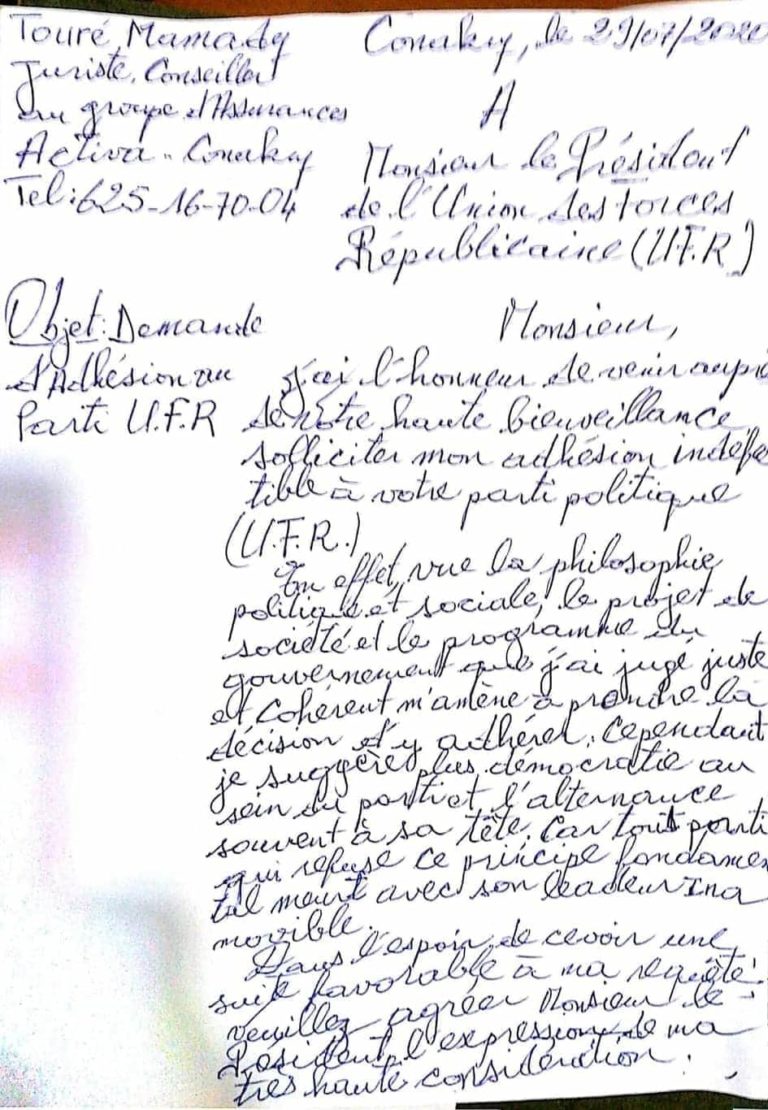 Touré Mamady
Conakry, le 29/07/2020
Juriste, Conseiller
au groupe d'Assurances
Activa - Conakry
Tel: 625-16-70-04
A
Monsieur le Président
de l'Union des Forces
Républicaine (U.F.R)
Objet: Demande
d'Adhésion au
Parti U.F.R
Monsieur,
j'ai l'honneur de venir auprè
de votre haute bienveillance
solliciter mon adhésion indéfec
tible à votre parti politique
(U.F.R.)
En effet, vue la philosophie
politique et sociale, le projet de
société et le programme du
gouvernement que j'ai jugé juste
et cohérent m'amène à prendre la
décision d'y adhérer. Cependant
je suggère plus démocratie au
sein du parti et l'alternance
souvent à sa tête. Car tout parti
qui refuse ce principe fondamen
tal meurt avec son leadeur ina
movible.
Dans l'espoir de cevoir une
suite favorable à ma requête,
veuillez agréer Monsieur le
Président l'expression de ma
très haute considération.